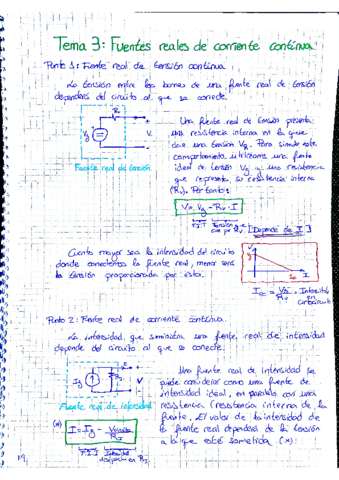 Tema 3: Fuentes reales de corriente continua
Punto 1: Fuente real de tensión continua
La tensión entre los bornes de una fuente real de tensión
dependerá del circuito al que se conecte.
Una fuente real de tensión presenta
una resistencia interna en la que
cae una tensión
Para simular este
comportamiento utilizamos una fuente
ideal de tensión Vg y una resistencia
que representa su resistencia interna
Por tanto:
Fuente real de tensión
V = Vg - Rv · I
Depende de I
Cuanto mayor sea la intensidad del circuito
donde conectemos la fuente real, menor será
la tensión proporcionada por ésta.
Icc = Vg/Rv = Intensidad
en
cortocircuito
Punto 2: Fuente real de corriente continua
La intensidad que suministra una fuente real de intensidad
depende del circuito al que se conecte.
Una fuente real de intensidad se
puede considerar como una fuente de
intensidad ideal, en paralelo con una
resistencia (resistencia interna de la
fuente. El valor de la intensidad de
la fuente real dependerá de la tensión
a la que esté sometida (*):
Ig
Fuente real de intensidad
(*)